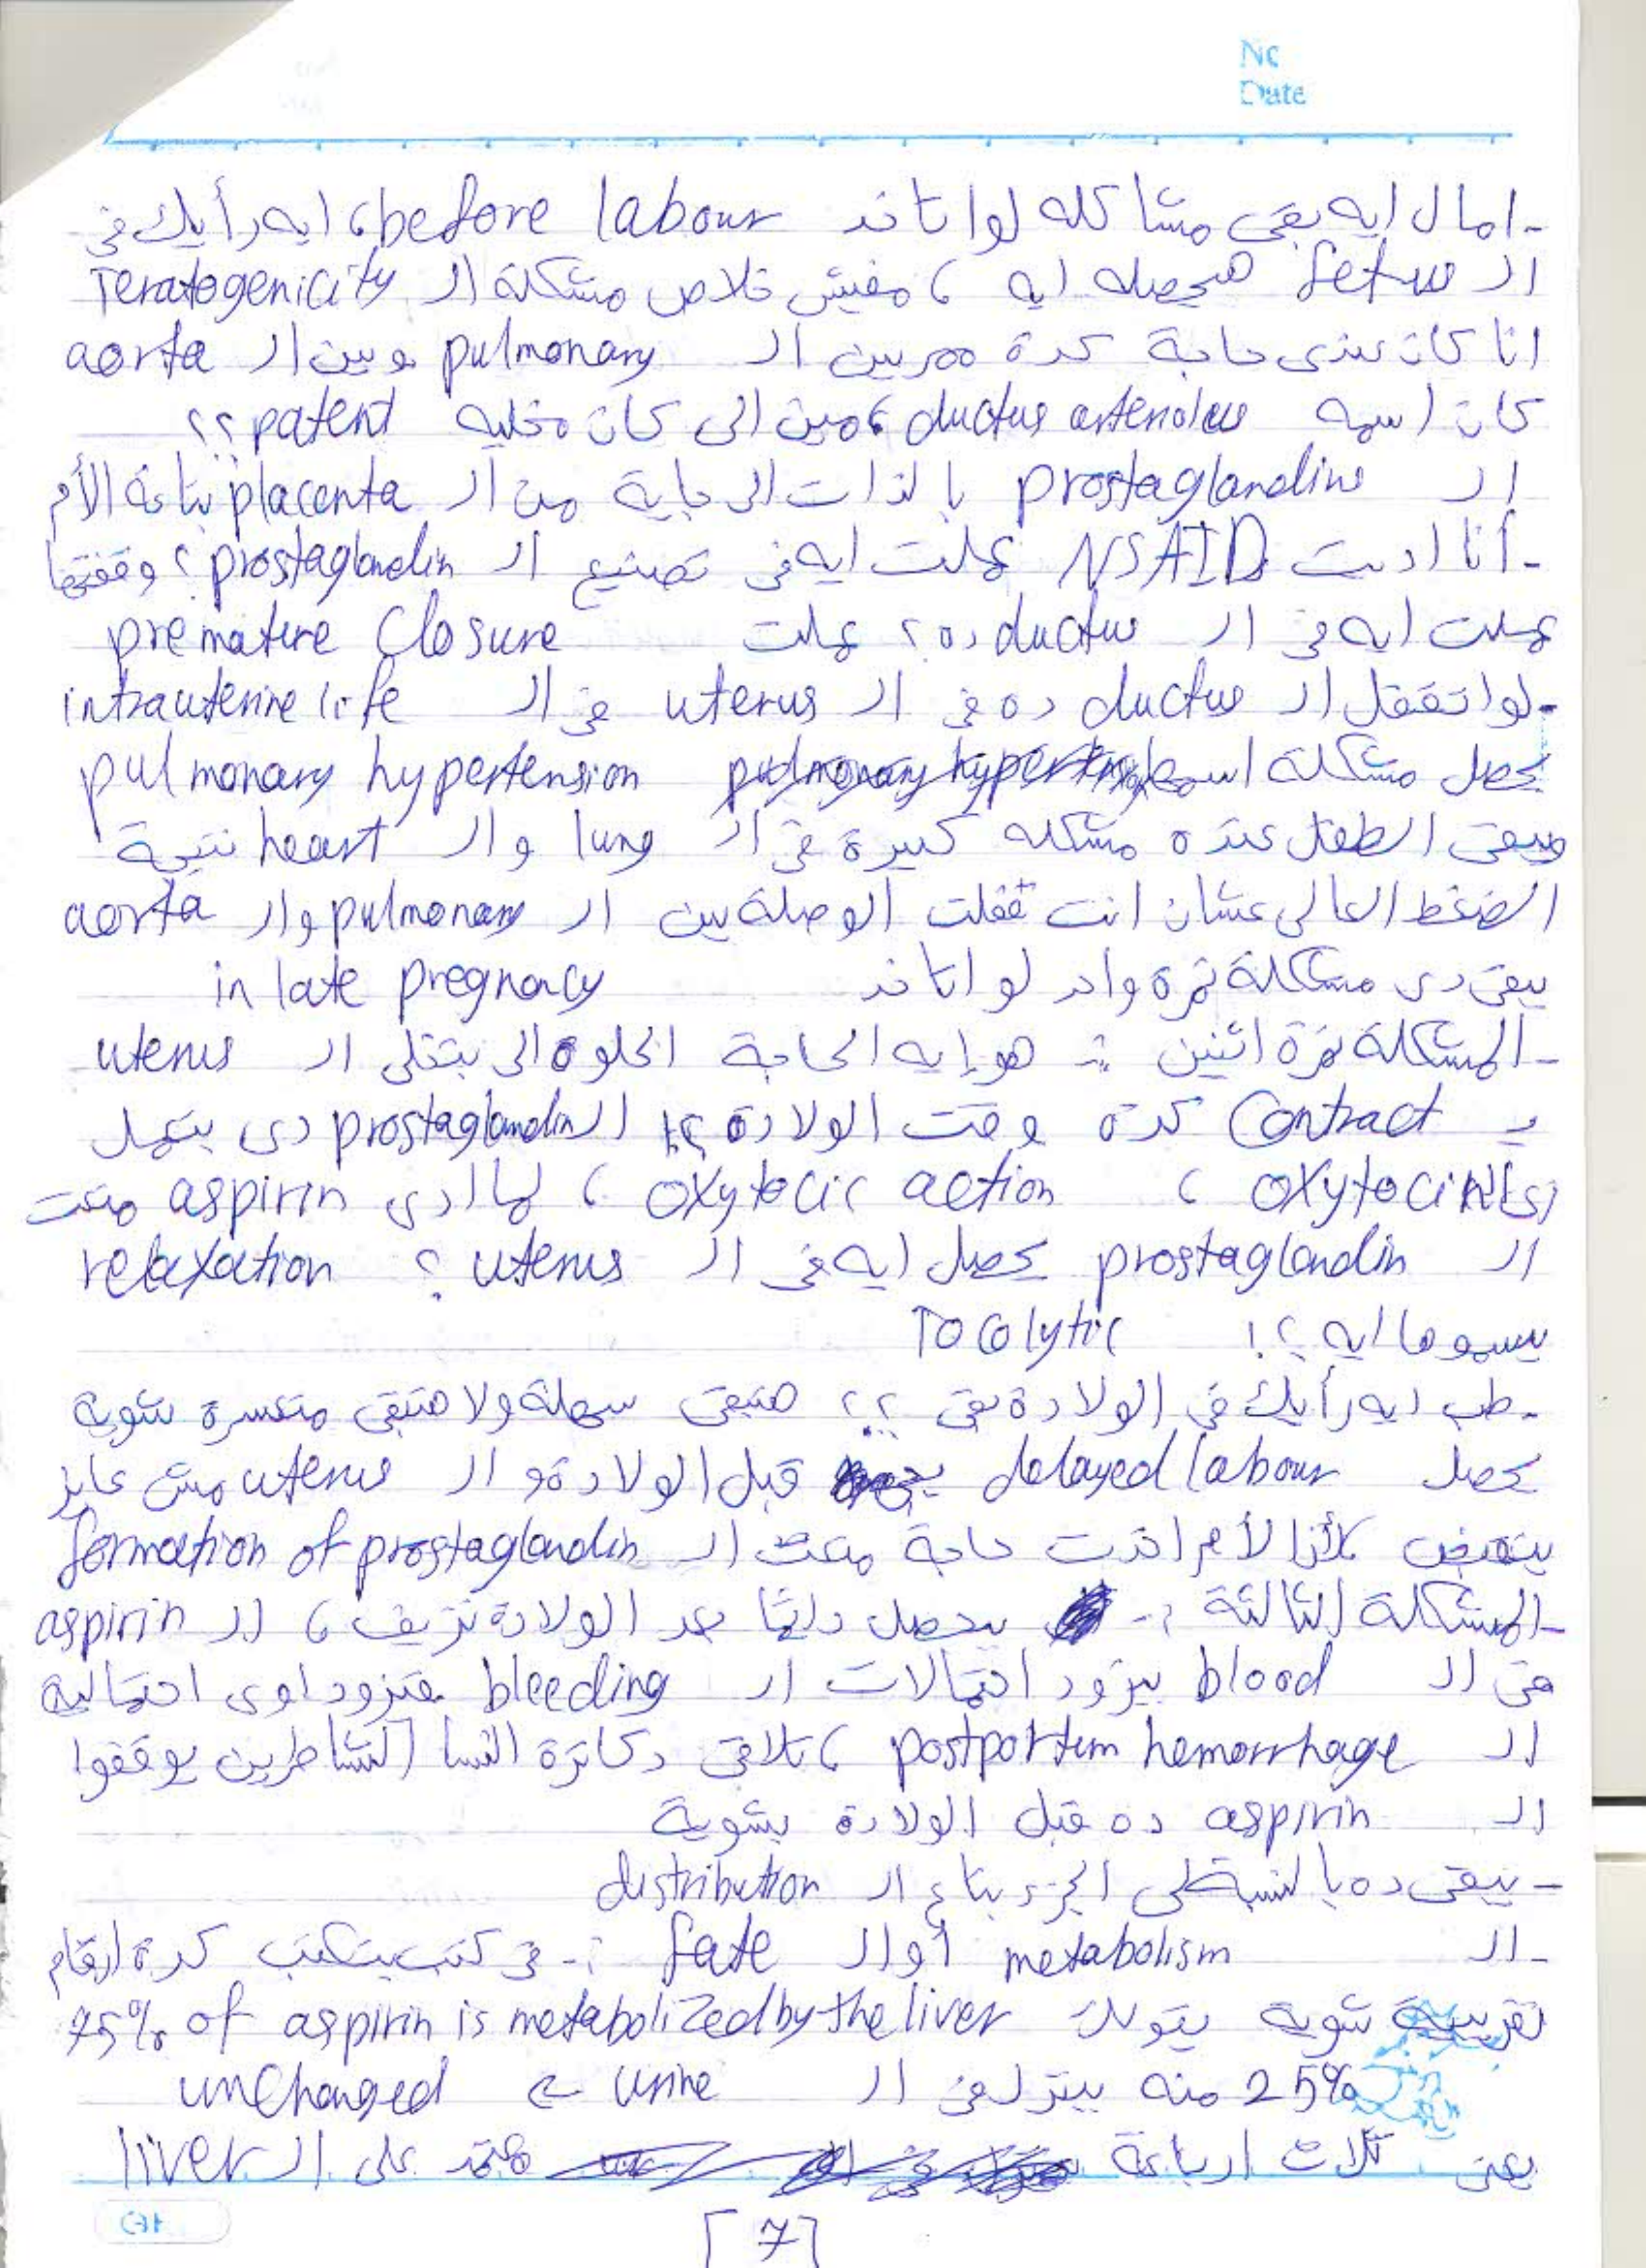 No
Date
- امال ايه بقى مشاكله لو اتاخد before labour، ايه رأيك فى
الـ fetus هيحصله ايه، مفيش خلاص مشكلة الـ Teratogenicity
انا كان عندى حاجة كدة ممر بين الـ pulmonary وبين الـ aorta
كان اسمه ductus arteriolus، مين الى كان مخليه patent ؟؟
الـ prostaglandins بالذات الى جاية من الـ placenta بتاعة الأم
- أنا اديت NSAIDs عملت ايه فى تصنيع الـ prostaglandin؟ وقفتها
عملت ايه فى الـ ductus ده؟ عملت premature Closure
- لو اتقفل الـ ductus ده فى الـ uterus فى الـ intrauterine life
يحصل مشكلة اسمها pulmonary hypertension
فيبقى الطفل عنده مشكله كبيرة فى الـ lung والـ heart نتيجة
الضغط العالى عشان انت قفلت الوصلة بين الـ pulmonary والـ aorta
يبقى دى مشكلة نمرة واحد لو اتاخد in late pregnancy
- المشكلة نمرة اثنين :- هو إيه الحاجة الحلوة الى بتخلى الـ uterus
يـ Contract كدة وقت الولادة؟! الـ prostaglandin دى بتعمل
زى الـ oxytocin، oxytocic action، لما ادى aspirin منعت
الـ prostaglandin يحصل ايه فى الـ uterus ؟ relaxation
يسموها ايه؟! Tocolytic
- طب ايه رأيك فى الولادة بقى ؟؟ هتبقى سهلة ولا هتبقى متعسرة شوية
يحصل delayed labour قبل الولادة والـ uterus مش عايز
ينقبض لأن الأم اخدت حاجة منعت الـ formation of prostaglandin
- المشكلة الثالثة :- بيحصل دايمًا بعد الولادة نزيف، الـ aspirin
فى الـ blood بيزود احتمالات الـ bleeding فتزود اوى احتمالية
الـ postpartum hemorrhage، تلاقى دكاترة النسا الشاطرين يوقفوا
الـ aspirin ده قبل الولادة بشوية
- يبقى ده بالنسبة لى الجزء بتاع الـ distribution
- الـ metabolism أو الـ fate :- فى كتب بتكتب كدة ارقام
تقريبية شوية يقولك 75% of aspirin is metabolized by the liver
25% منه بينزل فى الـ urine ← unchanged
يعنى تلات ارباعة هتمد على الـ liver
[7]